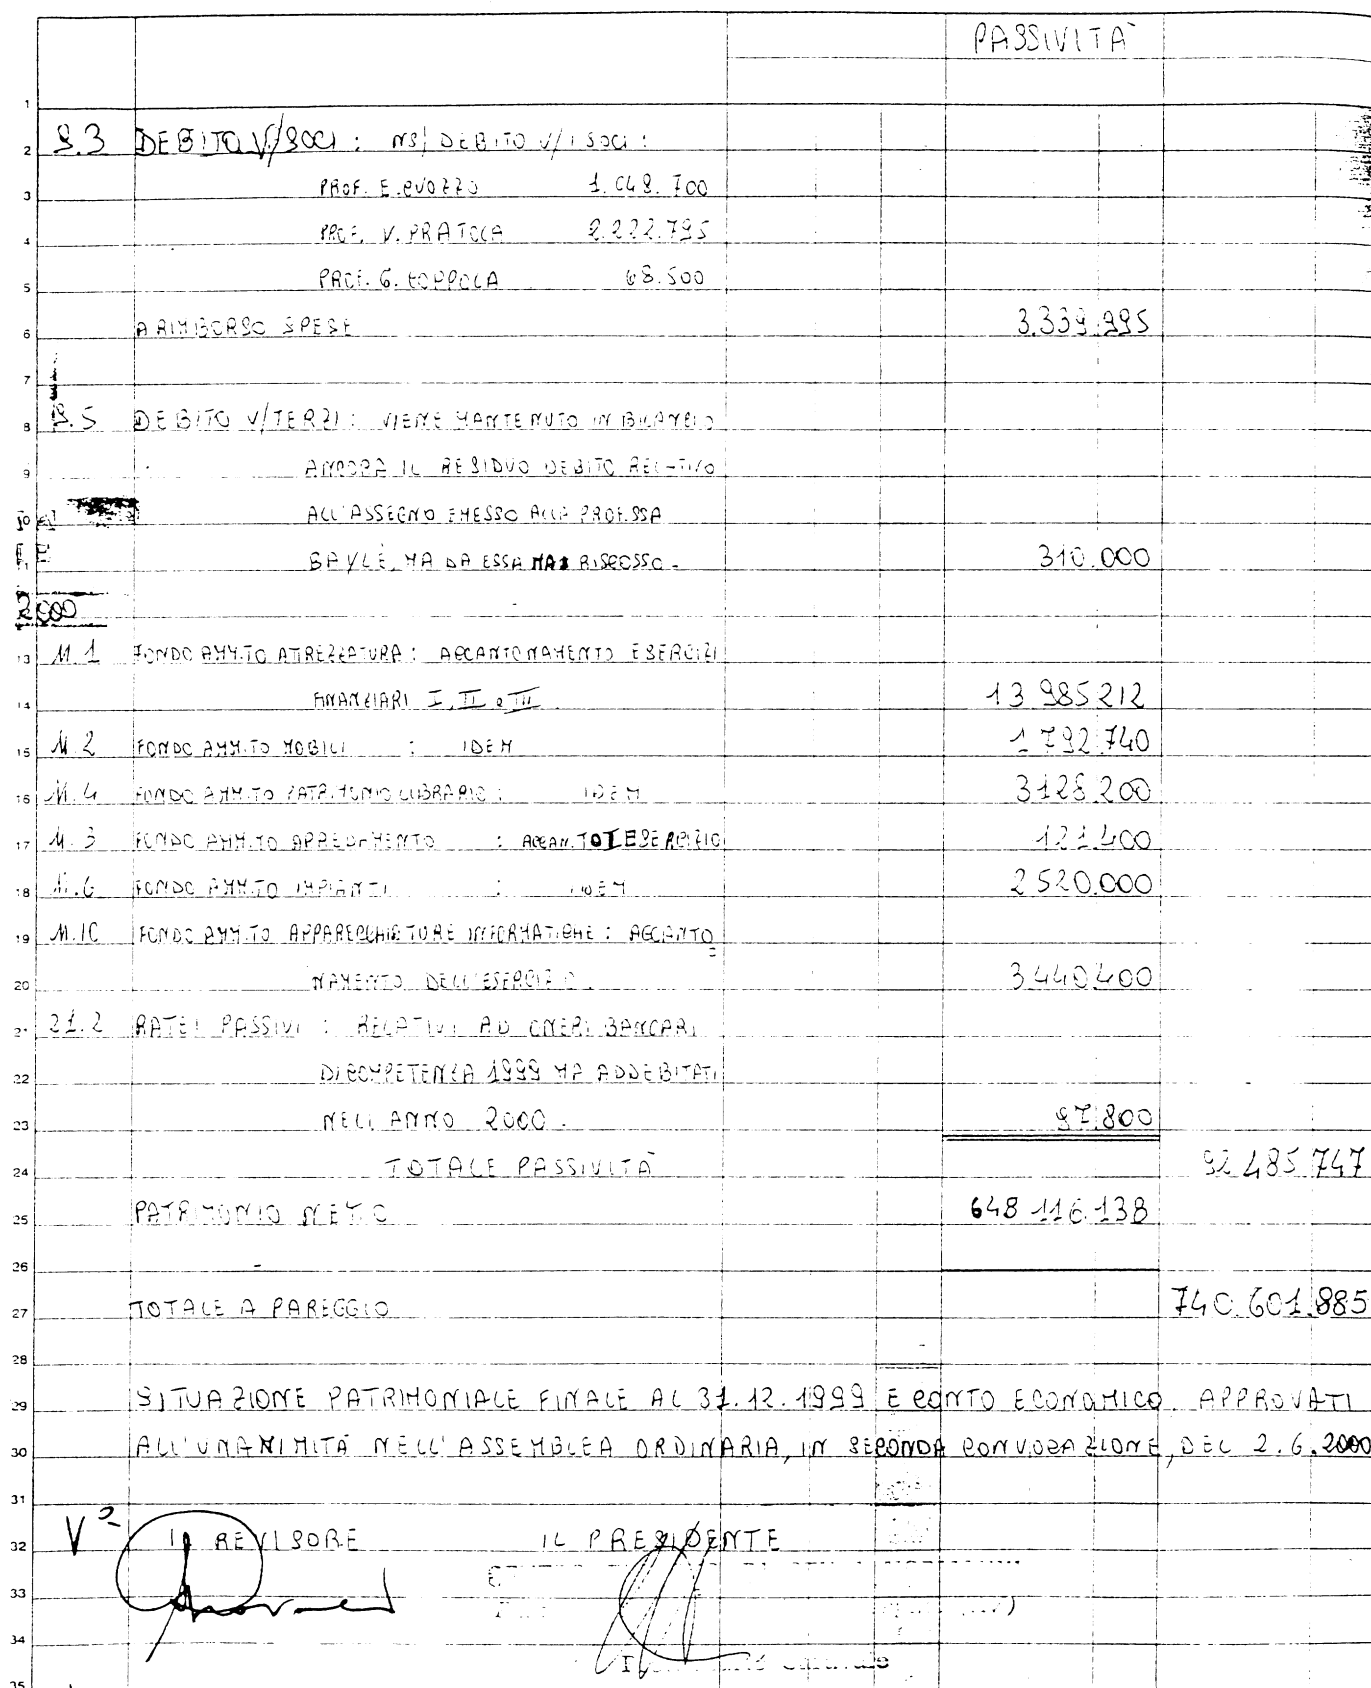 PASSIVITÀ
1
2 9.3 DEBITO V/SOCI : NS/ DEBITO V/I SOCI :
3 PROF. E. CUOZZO 1.048.700
4 PROF. V. PRATOLA 2.222.795
5 PROF. G. COPPOLA 68.500
6 A RIMBORSO SPESE 3.339.995
7
8 9.5 DEBITO V/TERZI : VIENE MANTENUTO IN BILANCIO
9 ANCORA IL RESIDUO DEBITO RELATIVO
10 ALL'ASSEGNO EMESSO ALLA PROF.SSA
BAYLÈ, MA DA ESSA MAI RISCOSSO. 310.000
2000
13 11.1 FONDO AMM.TO ATTREZZATURA : ACCANTONAMENTO ESERCIZI
14 FINANZIARI I, II e III 13 985 212
15 11.2 FONDO AMM.TO MOBILI : IDEM 1 792 740
16 11.4 FONDO AMM.TO PATRIMONIO LIBRARIO : IDEM 3 128 200
17 11.3 FONDO AMM.TO ARREDAMENTO : ACCAN.TO I ESERCIZIO 121.400
18 11.6 FONDO AMM.TO IMPIANTI : IDEM 2 520.000
19 11.10 FONDO AMM.TO APPARECCHIATURE INFORMATICHE : ACCANTO=
20 NAMENTO DELL'ESERCIZIO. 3 440 400
21 21.2 RATEI PASSIVI : RELATIVI AD ONERI BANCARI
22 DI COMPETENZA 1999 MA ADDEBITATI
23 NELL'ANNO 2000. 97.800
24 TOTALE PASSIVITÀ 92 485 747
25 PATRIMONIO NETTO 648 116.138
26
27 TOTALE A PAREGGIO 740.601.885
28
29 SITUAZIONE PATRIMONIALE FINALE AL 31.12.1999 E CONTO ECONOMICO. APPROVATI
30 ALL'UNANIMITÀ NELL'ASSEMBLEA ORDINARIA, IN SECONDA CONVOCAZIONE, DEL 2.6.2000
31
32 V° IL REVISORE IL PRESIDENTE
33
34
35